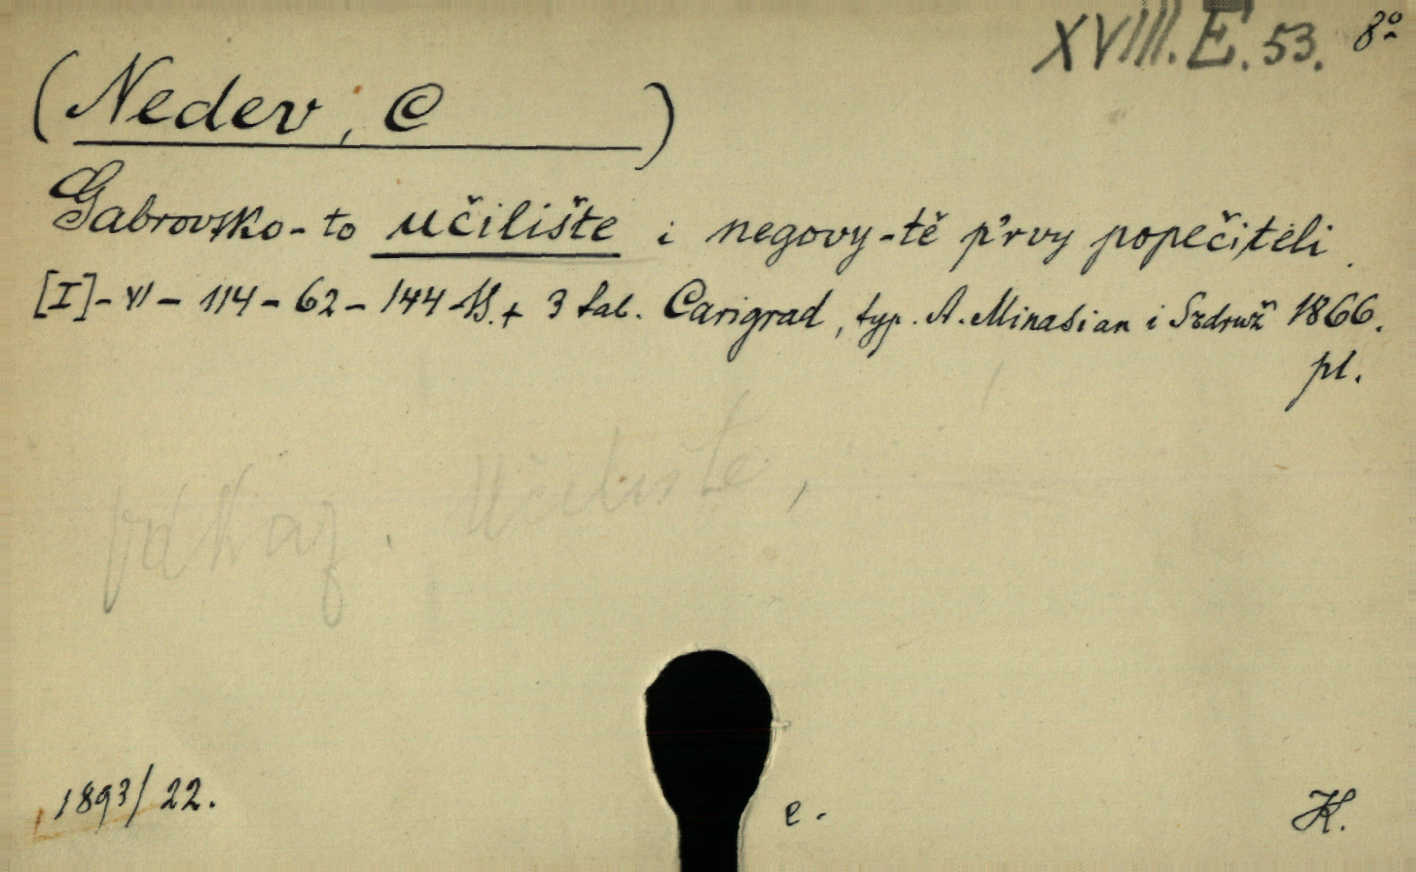 XVIII. E. 53. 8°
(Nedev, C )
Gabrovsko-to učilište i negovy-tě p'rvy popečiteli.
[I]- VI - 114 - 62 - 144 S. + 3 tab. Carigrad, typ. A. Minasian i Szdruž 1866.
pl.
Učiliste,
1893/22.
e.
K.